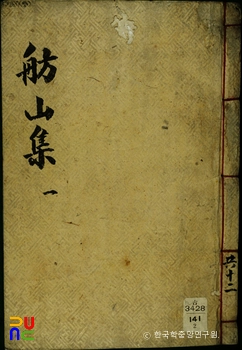 舫山集
一
共十二
古
3428
141
2
ⓒ 한국학중앙연구원